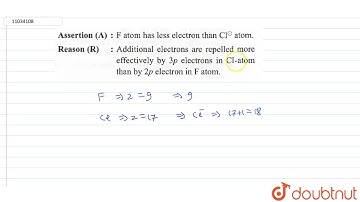 11034108
Assertion (A) : F atom has less electron than Cl⊖ atom.
Reason (R) : Additional electrons are repelled more
effectively by 3p electrons in Cl-atom
than by 2p electron in F atom.
F ⇒ Z = 9 ⇒ 9
Cl ⇒ Z = 17 ⇒ Cl⁻ ⇒ 17+1 = 18
doubtnut